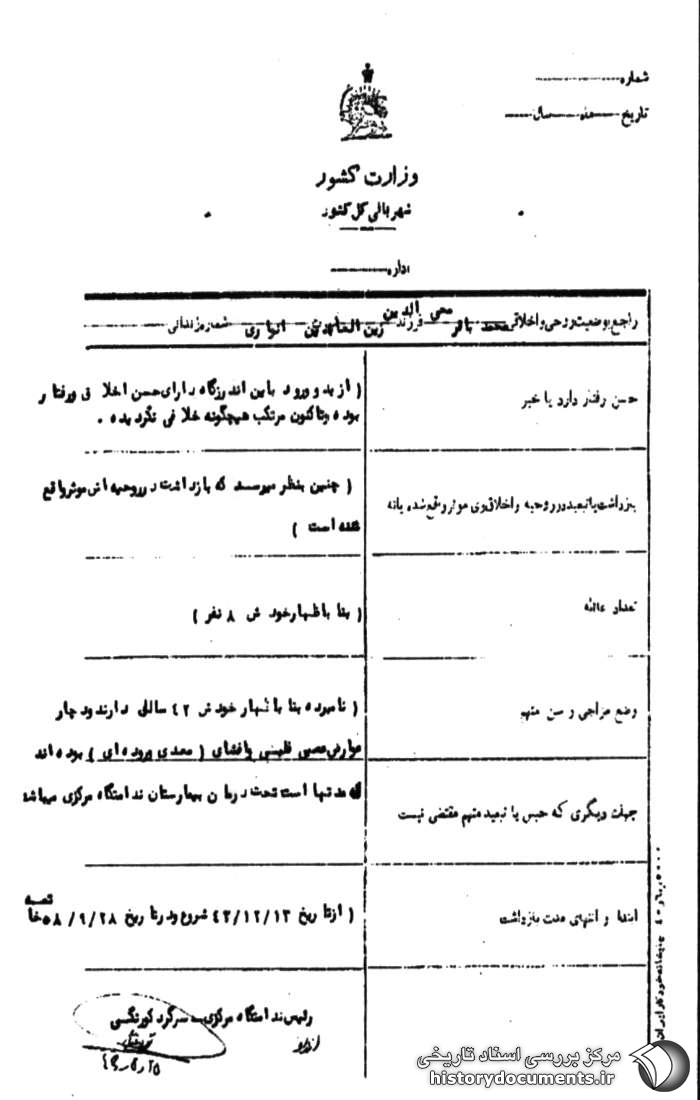 شماره
تاریخ ماه سال
وزارت کشور
شهربانی کل کشور
اداره
راجع بوضعیت روحی و اخلاقی محمد باقر محی الدین فرزند زین العابدین انواری شماره زندانی
حسن رفتار دارد یا خیر
( از بد و ورود باین اندرزگاه دارای حسن اخلاق و رفتار
بوده و تاکنون مرتکب هیچگونه خلافی نگردیده .
بازداشت یا تبعید در روحیه و اخلاق وی موثر واقع شده یا نه
( چنین بنظر میرسد که بازداشت در روحیه اش موثر واقع
شده است )
تعداد عائله
( بنا باظهار خودش ۸ نفر )
وضع مزاجی و سن متهم
( نامبرده بنا باظهار خودش ۴۲ ساله دارند و دچار
عوارض عصبی قلبی و افشای ( معدی بروده ای ) بوده اند
که مدتها است تحت درمان بیمارستان ندامتگاه مرکزی میباشد
جهات دیگری که حبس یا تبعید متهم مقتضی نیست
ابتدا و انتهای مدت بازداشت
( از تاریخ ۴۳/۱۲/۱۳ شروع و در تاریخ ۵۸/۹/۲۸ خاتمه
رئیس ندامتگاه مرکزی - سرگرد کورنگی
مرکز بررسی اسناد تاریخی
historydocuments.ir